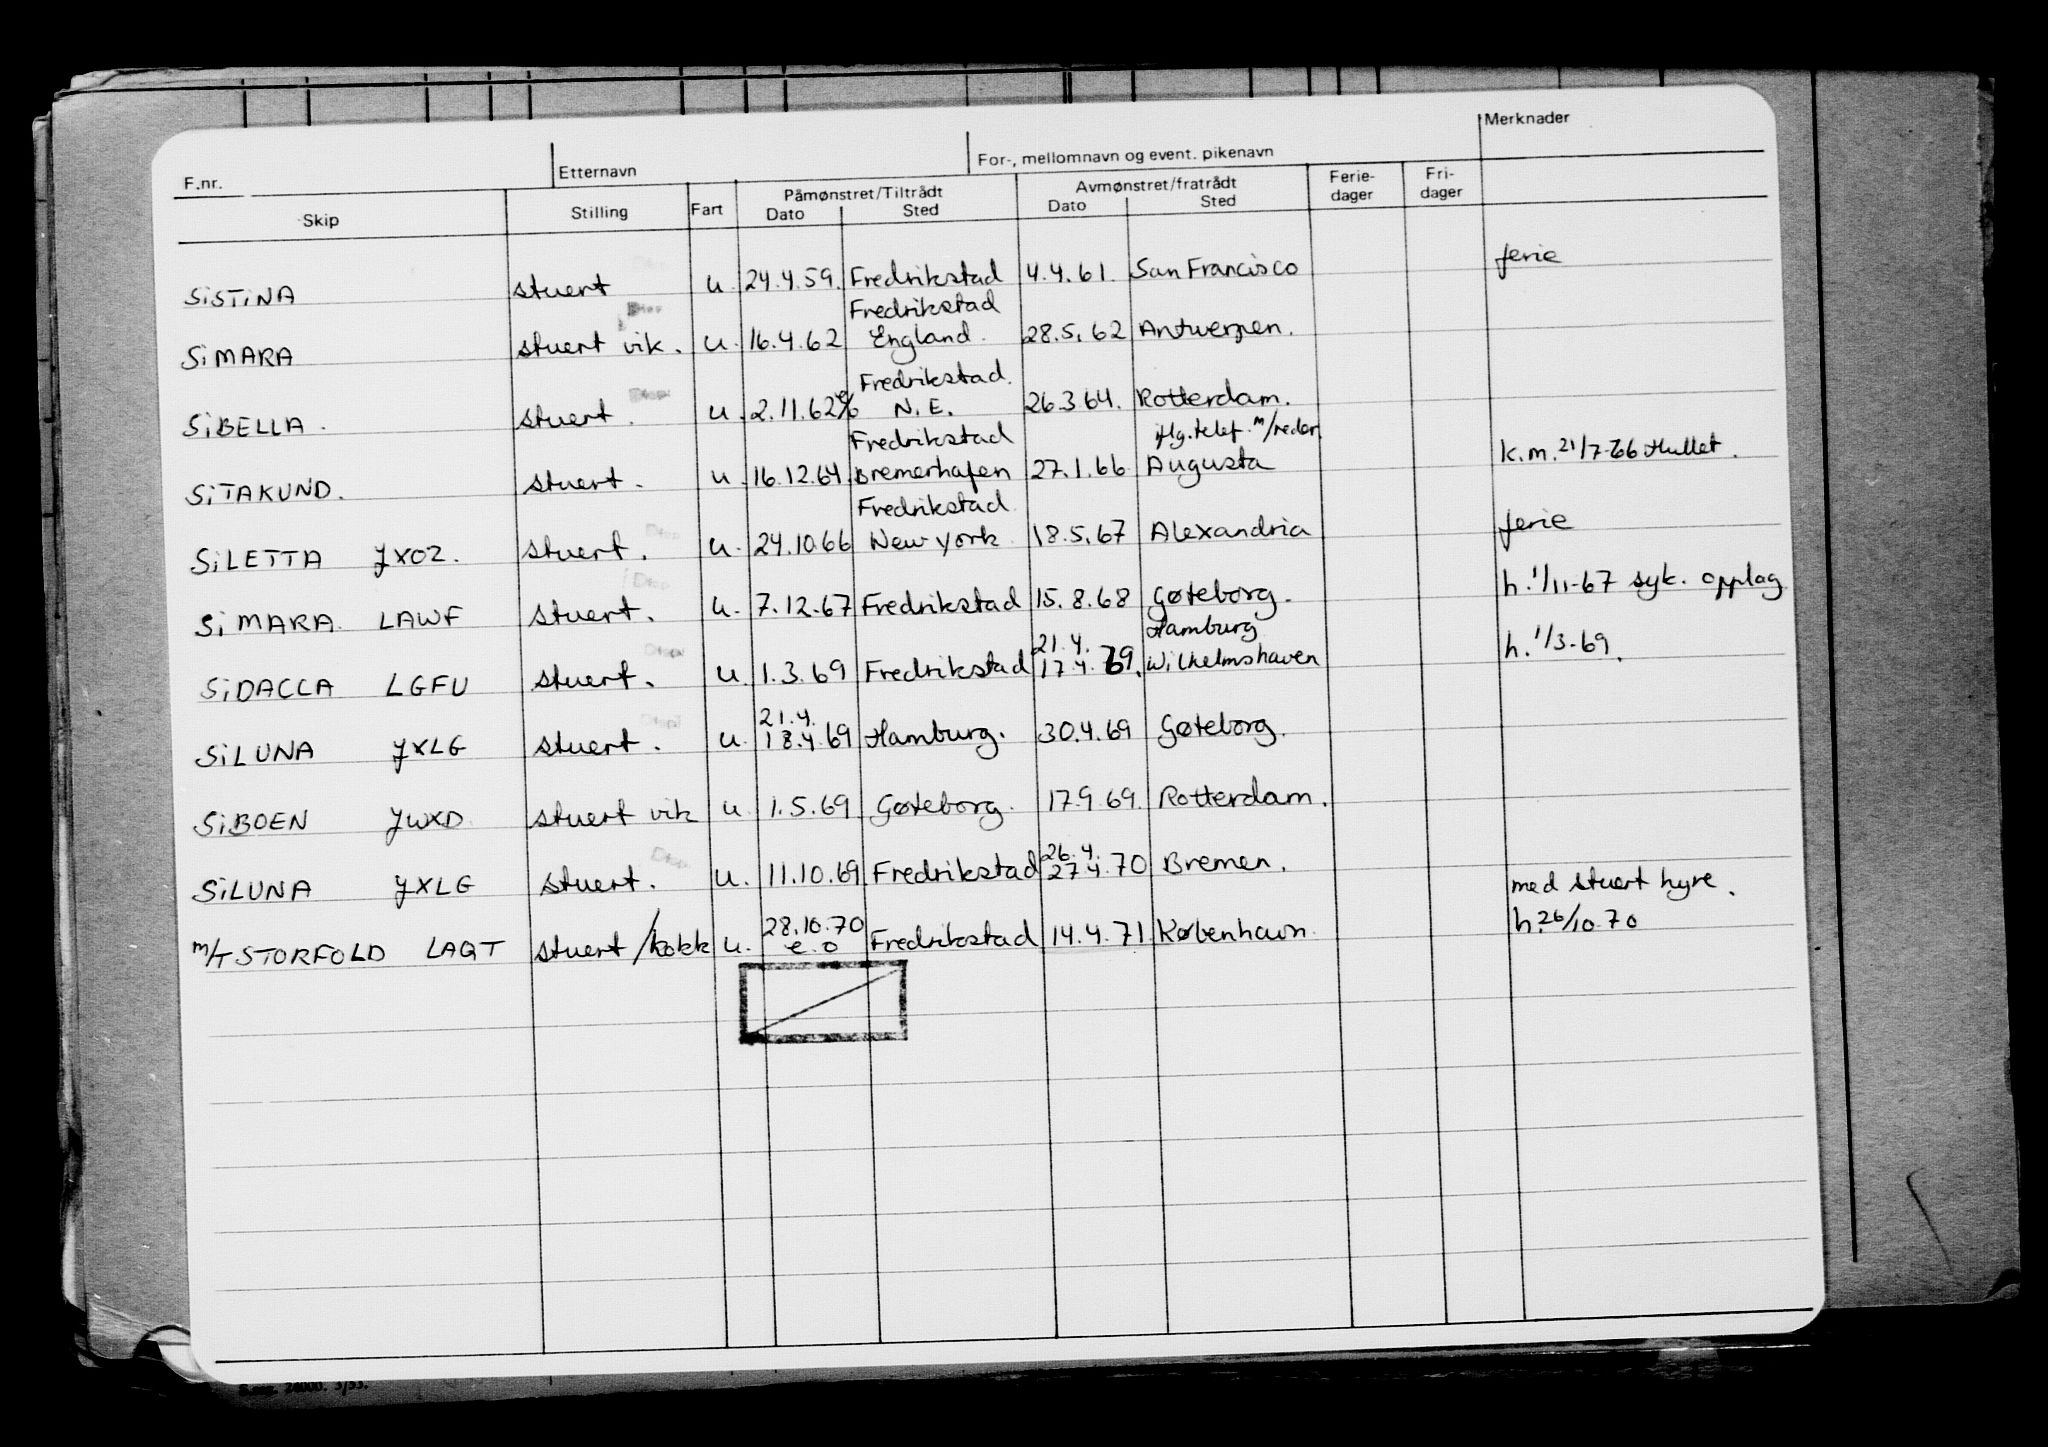 Merknader
F.nr. Etternavn For-, mellomnavn og event. pikenavn
Skip Stilling Fart Påmønstret/Tiltrådt Avmønstret/fratrådt Ferie-dager Fri-dager
Dato Sted Dato Sted
SiSTiNA stuert u. 24.4.59. Fredrikstad 4.4.61. San Francisco ferie
Fredrikstad
SiMARA stuert vik. u. 16.4.62 England. 28.5.62 Antwerpen.
Fredrikstad.
SiBELLA. stuert. u. 2.11.62 N.E. 26.3 64. Rotterdam.
Fredrikstad ifg. telef. m/reder.
SiTAKUND. stuert. u. 16.12.64 Bremerhafen 27.1.66 Augusta k.m. 21/7-66 Hullet.
Fredrikstad
SiLETTA JXOZ. stuert. u. 24.10.66 New York 18.5.67 Alexandria ferie
SiMARA. LAWF stuert. u. 7.12.67 Fredrikstad 15.8.68 Gøteborg. h. 1/11-67 syk. opplag
21.4. Hamburg
SiDACCA LGFU stuert. u. 1.3.69 Fredrikstad 17.4.69. Wilhelmshaven h. 1/3-69.
21.4.
SiLUNA JXLG stuert. u. 18.4.69 Hamburg. 30.4.69 Gøteborg.
SiBOEN JWXD stuert vik u. 1.5.69 Gøteborg. 17.9.69. Rotterdam.
26.4.
SiLUNA JXLG stuert. u. 11.10.69 Fredrikstad 27.4.70 Bremen.
med stuert hyre.
28.10.70
m/T STORFOLD LAQT stuert/kokk u. e.o Fredrikstad 14.4.71 København. h. 26/10-70
24000. 3/53.